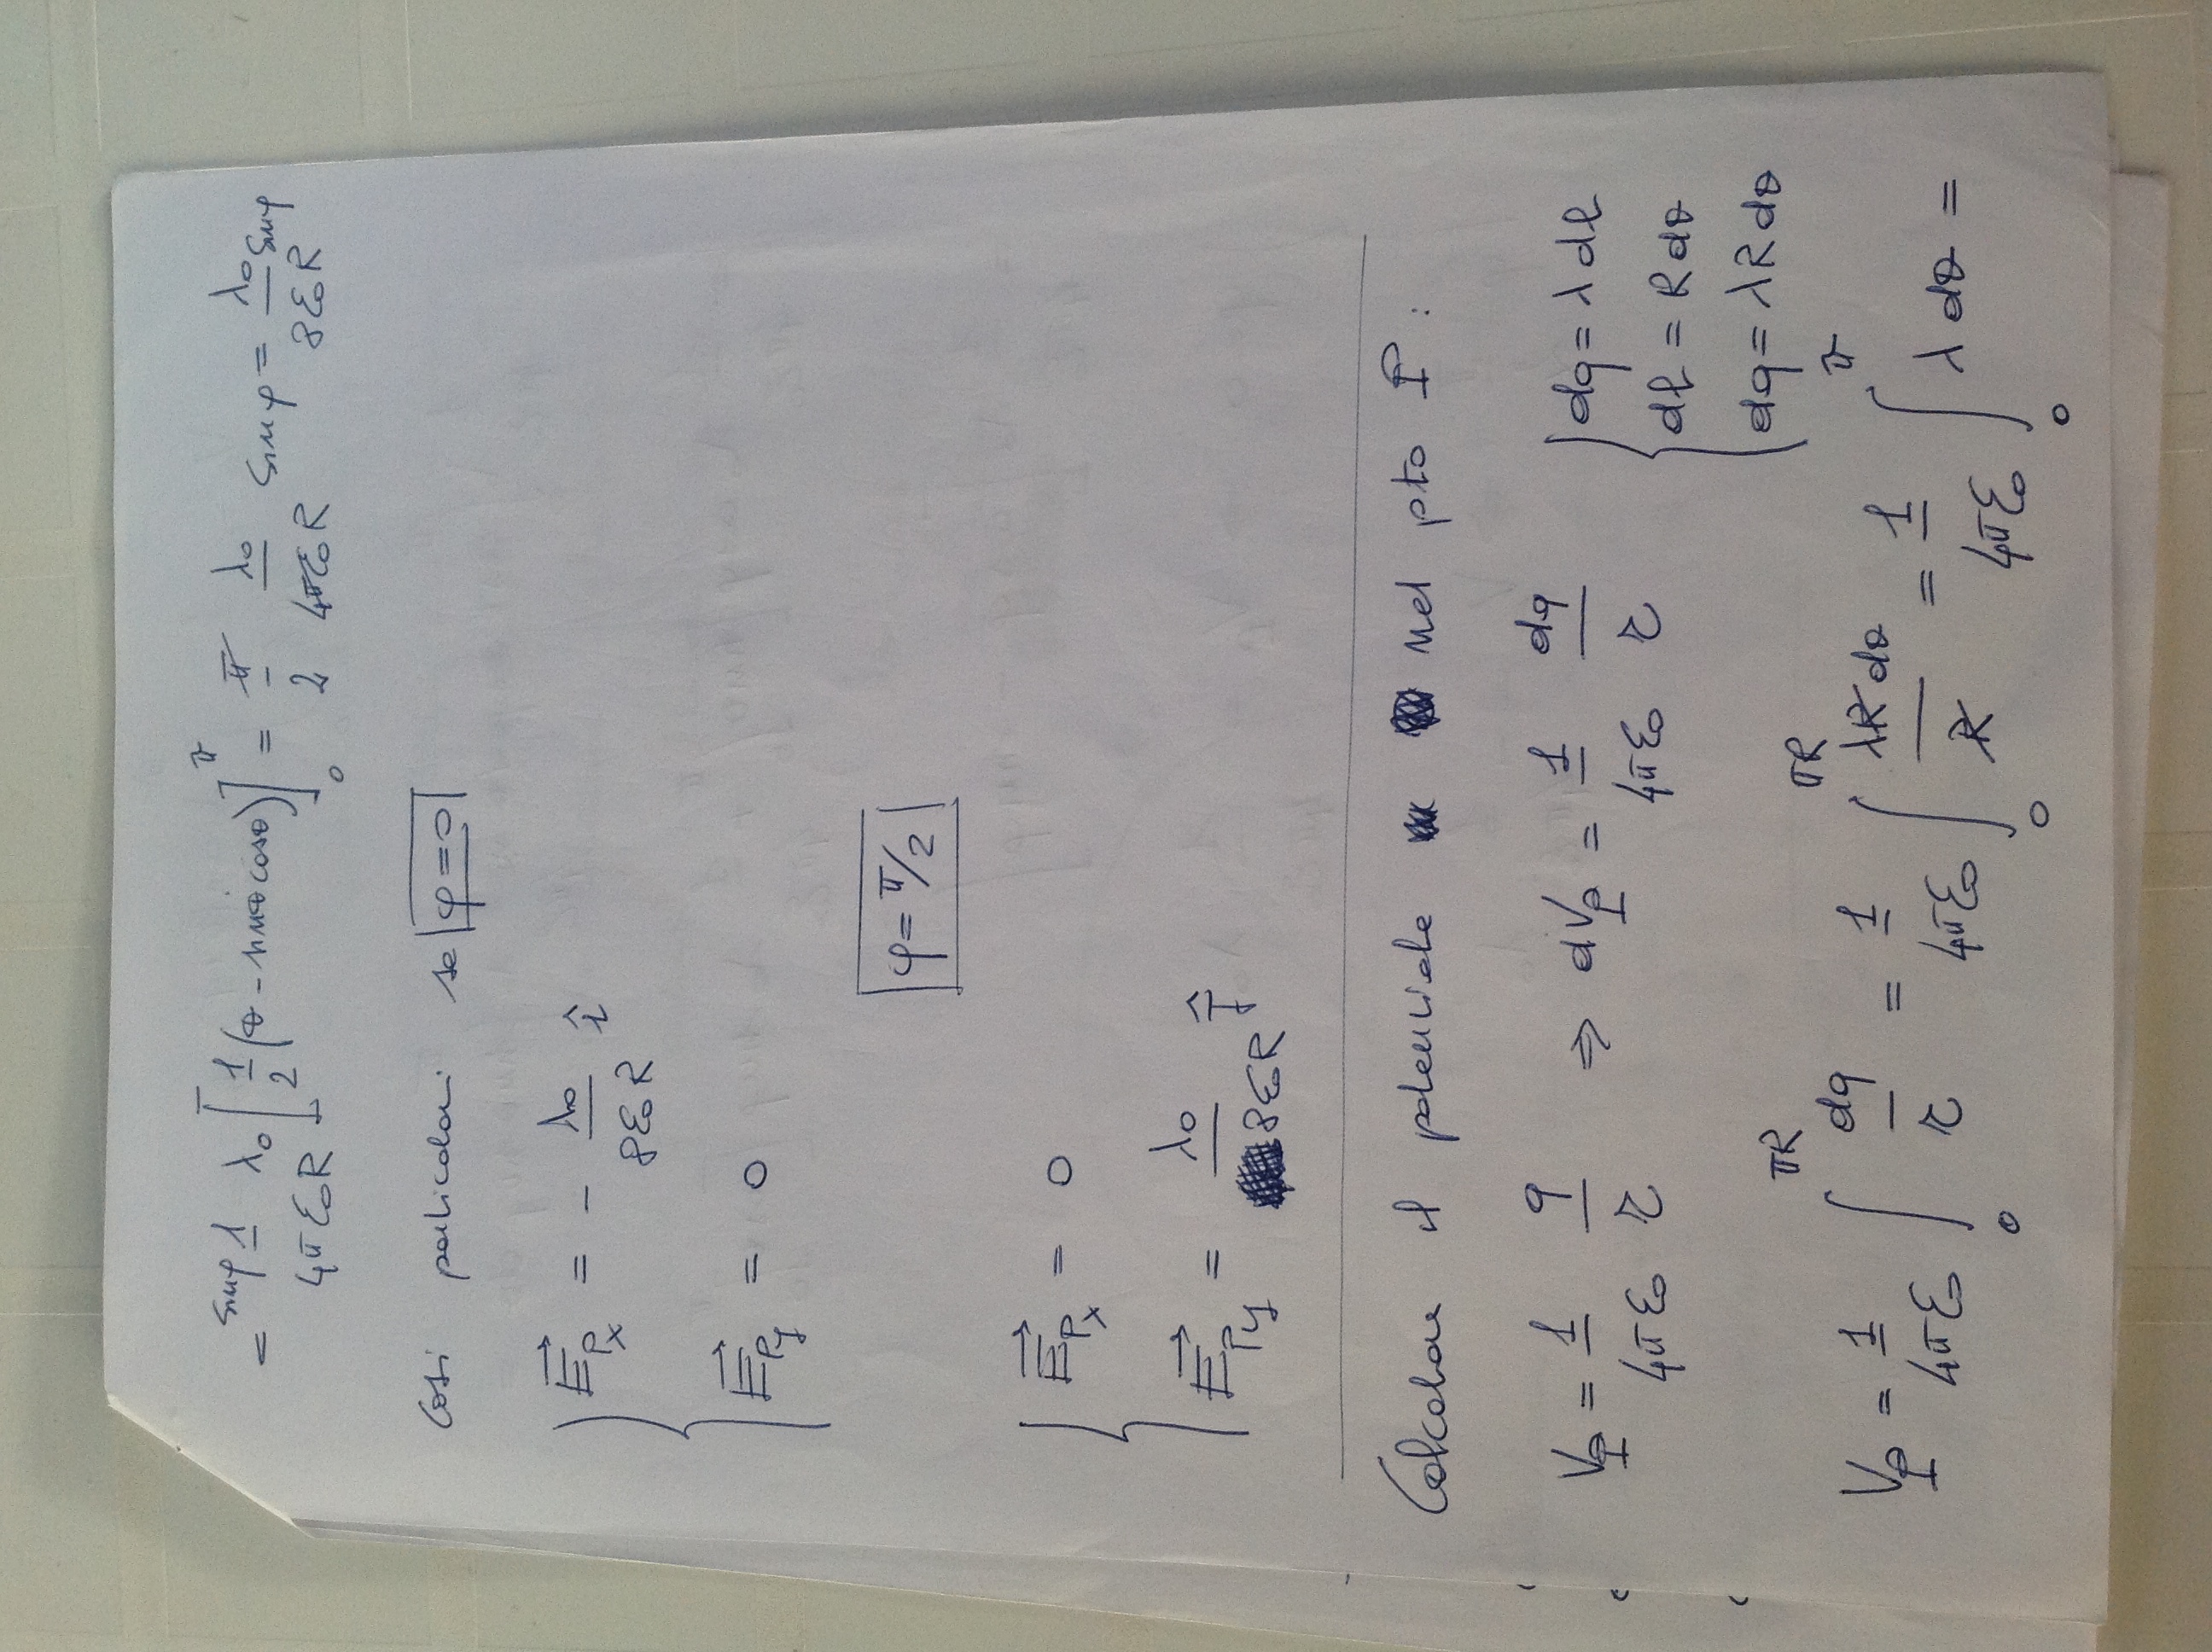 = sinφ 1/4πε₀R λ₀ [1/2 (θ - sinθcosθ)]₀^π = π/2 λ₀/4πε₀R sinφ = λ₀/8ε₀R sinφ
Casi particolari se φ=0
E⃗Px = - λ₀/8ε₀R î
E⃗Py = 0
φ=π/2
E⃗Px = 0
E⃗Py = λ₀/8ε₀R ĵ
Calcolare il potenziale nel pto P :
VP = 1/4πε₀ q/r ⇒ dVP = 1/4πε₀ dq/r
dq = λ dl
dl = R dθ
dq = λR dθ
VP = 1/4πε₀ ∫₀^πR dq/r = 1/4πε₀ ∫₀^πR λR dθ/R = 1/4πε₀ ∫₀^π λ dθ =